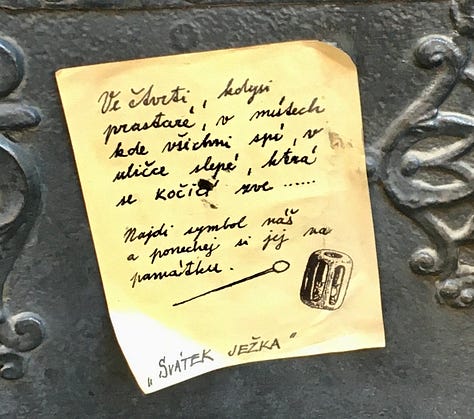 Ve čtvrti, kdysi
prastaré, v místech
kde všichni spí, v
uličce slepé, která
se kočičí zve ......
Najdi symbol náš
a ponechej si jej na
památku.
„SVÁTEK JEŽKA"